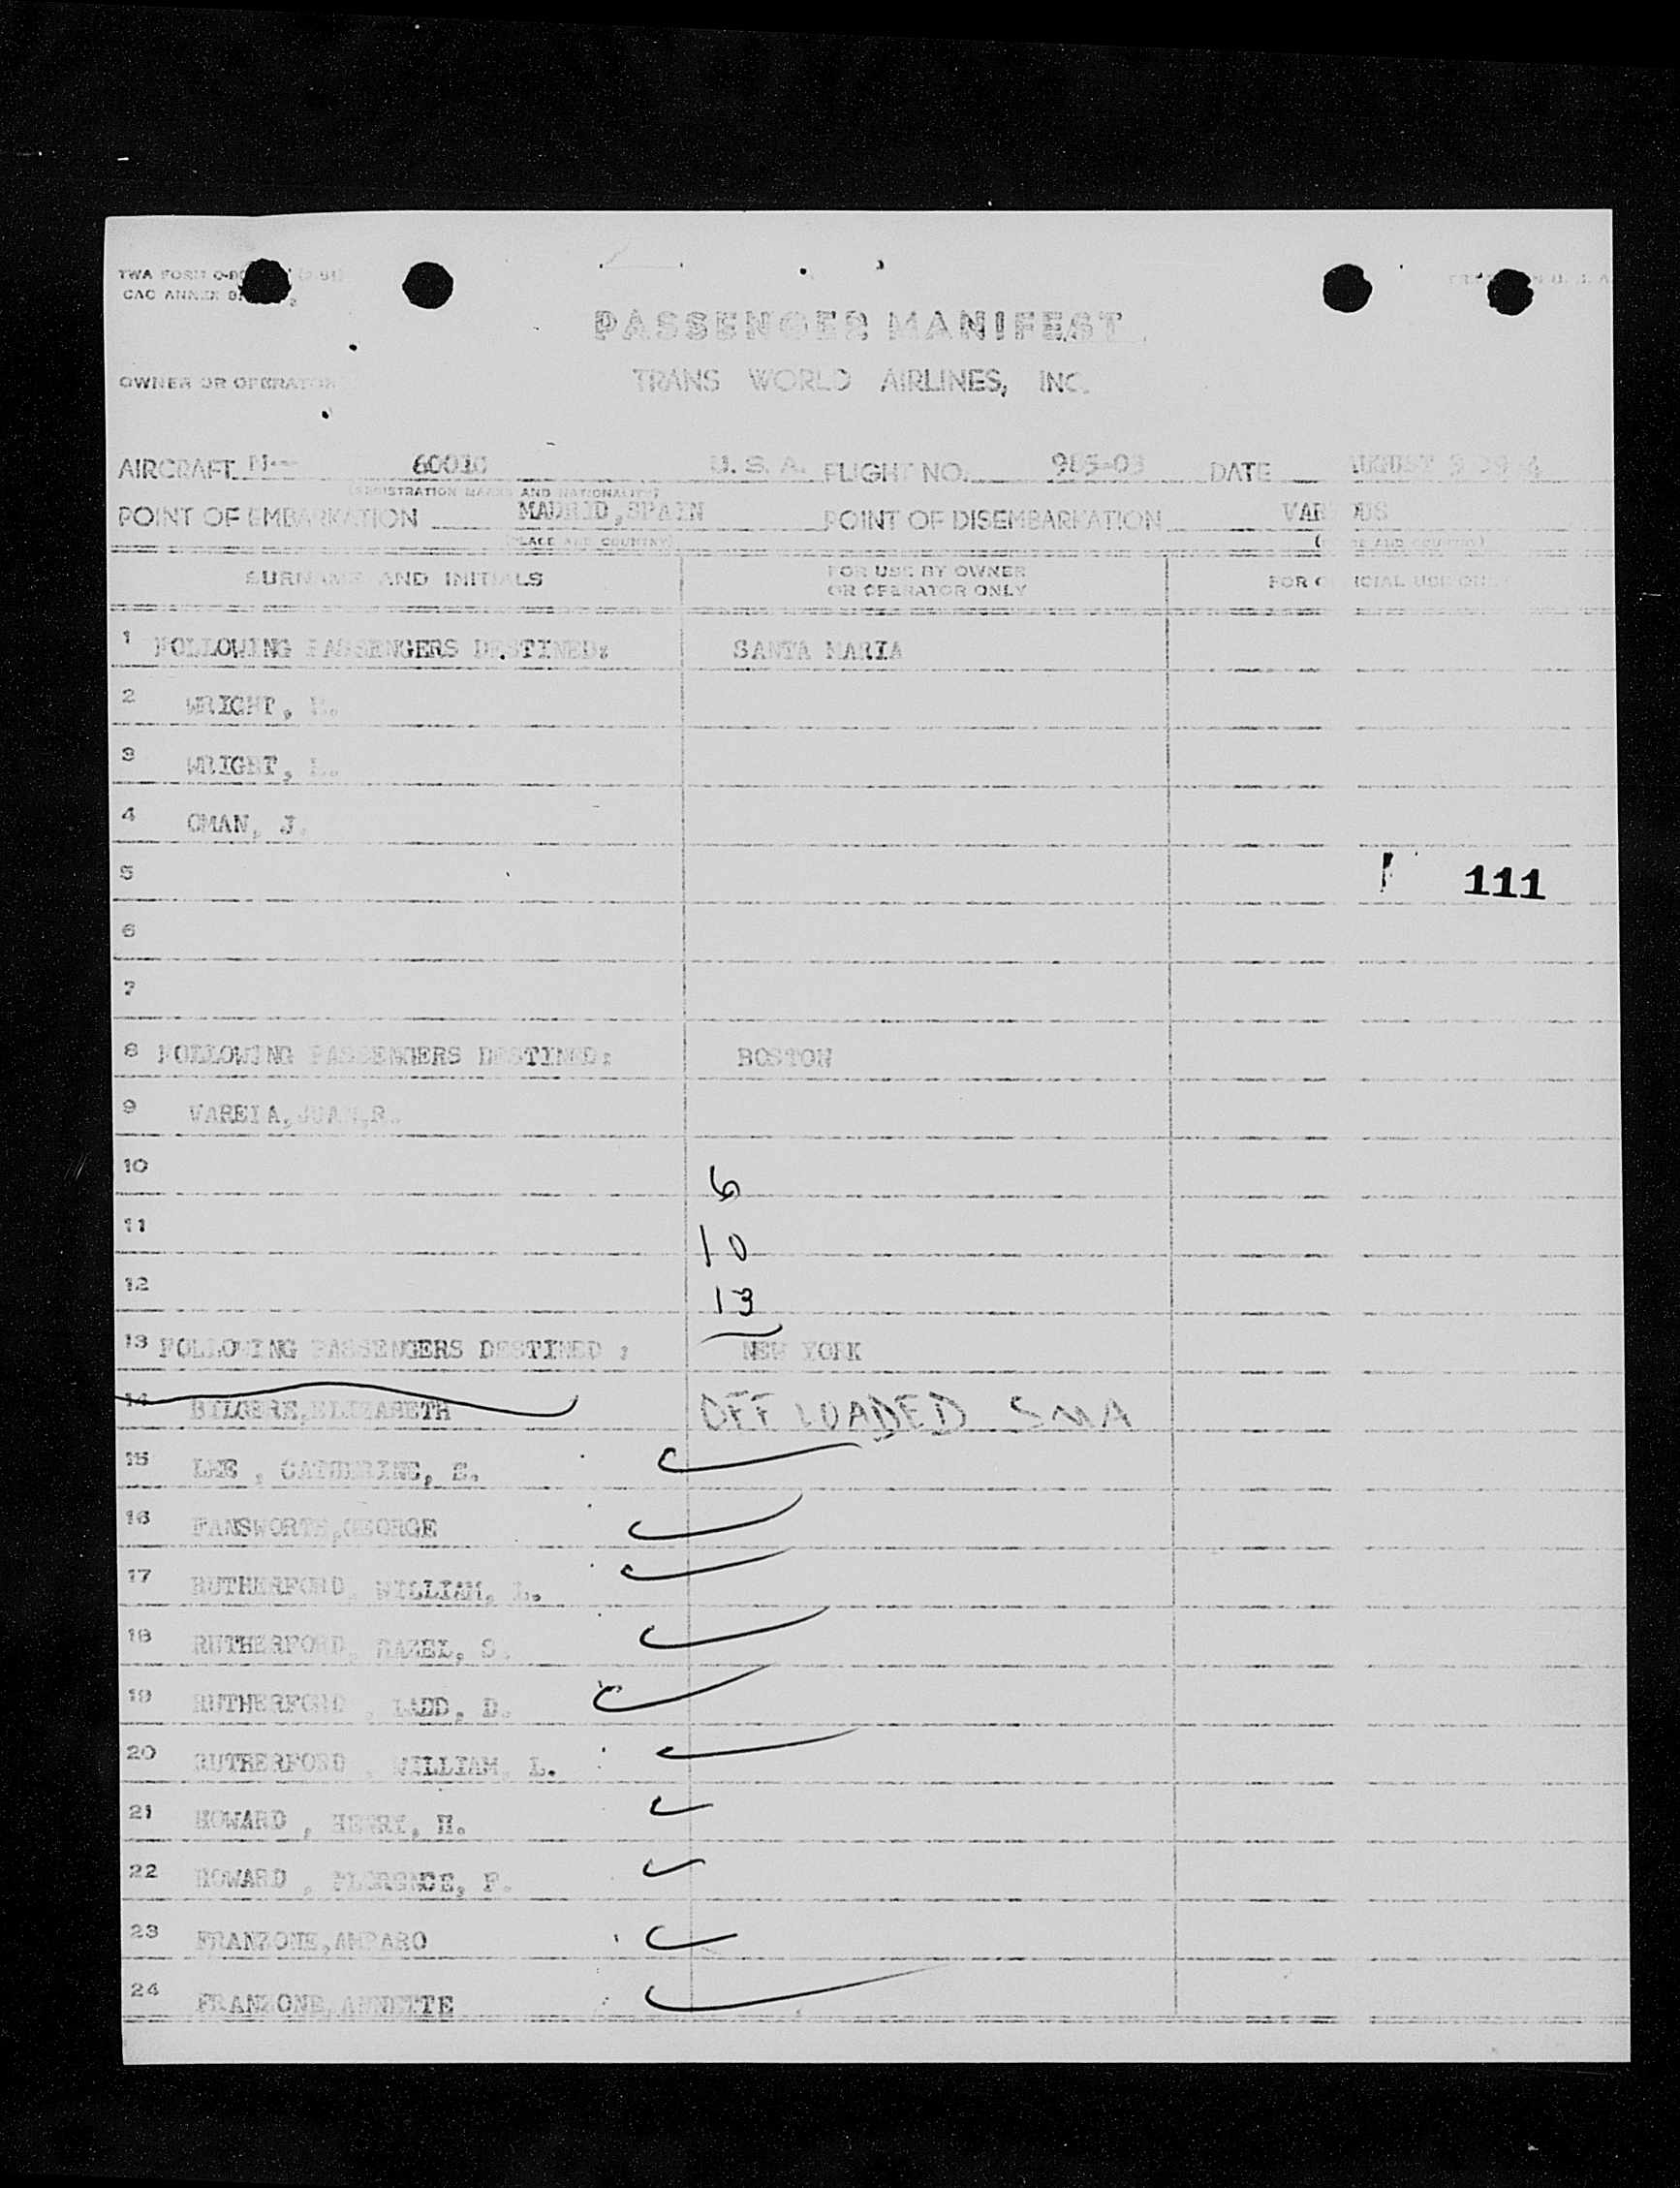 TWA FORM
CAC ANNEX
PASSENGER MANIFEST
OWNER OR OPERATOR
TRANS WORLD AIRLINES, INC.
AIRCRAFT N-- U. S. A. FLIGHT NO. DATE AUGUST
(REGISTRATION MARKS AND NATIONALITY)
POINT OF EMBARKATION MADRID, SPAIN POINT OF DISEMBARKATION VARIOUS
(PLACE AND COUNTRY) (PLACE AND COUNTRY)
SURNAME AND INITIALS FOR USE BY OWNER OR OPERATOR ONLY FOR OFFICIAL USE ONLY
1 FOLLOWING PASSENGERS DESTINED: SANTA MARIA
2 WRIGHT,
3 WRIGHT,
4 OMAN, J.
5 111
6
7
8 FOLLOWING PASSENGERS DESTINED: BOSTON
9 VARELA, JUAN, R.
10 6
11 10
12 13
13 FOLLOWING PASSENGERS DESTINED : NEW YORK
14 BILGERE, ELIZABETH OFF LOADED SMA
15 LEE , CATHERINE, E.
16 FANSWORTH, GEORGE
17 RUTHERFORD, WILLIAM, L.
18 RUTHERFORD, HAZEL, S.
19 RUTHERFORD , LADD, D.
20 RUTHERFORD , WILLIAM, L.
21 HOWARD , HENRY, H.
22 HOWARD , FLORENCE, F.
23 FRANZONE, AMPARO
24 FRANZONE, ANNETTE